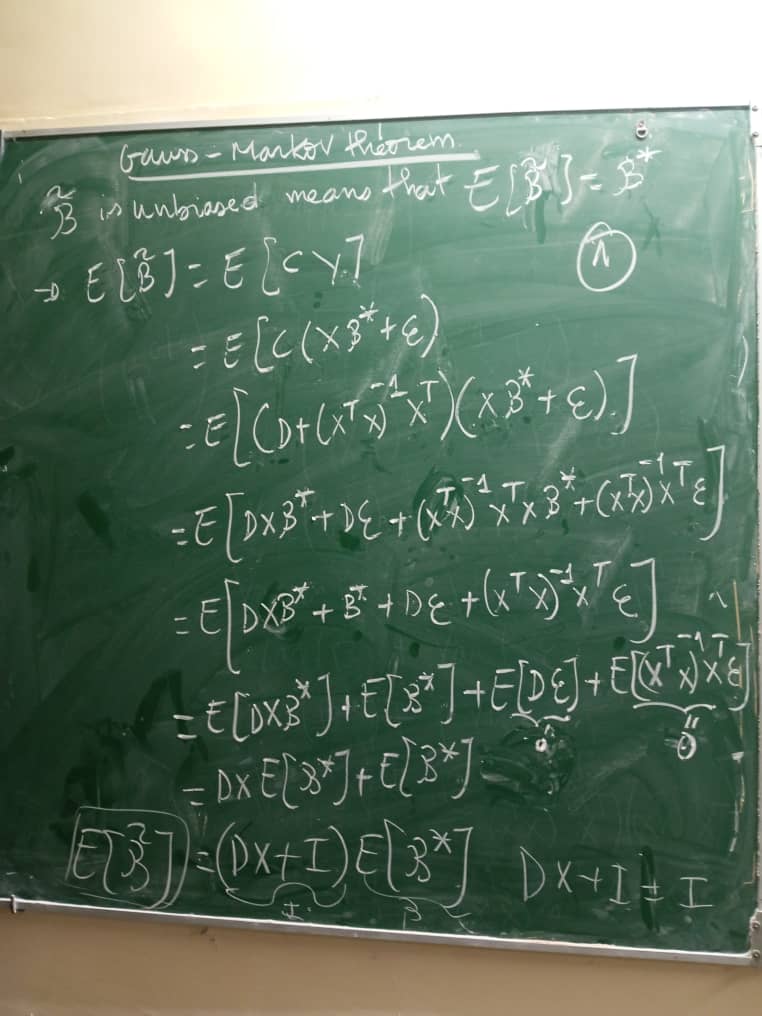 Gauss-Markov theorem
B̃ is unbiased means that E[B̃] = B*
→ E[B̃] = E[CY]
①
= E[C(XB*+ε)
= E[(D+(XᵀX)⁻¹Xᵀ)(XB*+ε)]
= E[DXB*+Dε+(XᵀX)⁻¹XᵀXB*+(XᵀX)⁻¹Xᵀε]
= E[DXB*+B*+Dε+(XᵀX)⁻¹Xᵀε]
= E[DXB*]+E[B*]+E[Dε]+E[(XᵀX)⁻¹Xᵀε]
0 0
= DXE[B*]+E[B*]
E[B̃] = (DX+I)E[B*] DX+I = I
I